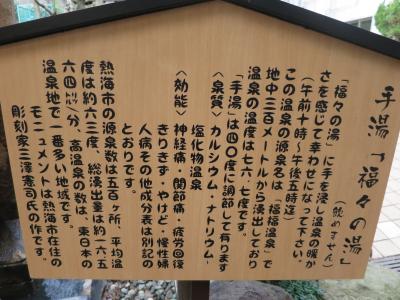 手湯「福々の湯」
(飲めません)
「福々の湯」に手を浸し温泉の暖か
さを感じて幸わせになって下さい。
(午前十時〜午後五時迄)
この温泉の源泉名は「福福温泉」で
地中三百メートルから湧出しており
温泉の温度は七六、七度です。
「手湯」は四〇度に調節して有ります
〈泉質〉カルシウム・ナトリウム-
塩化物温泉
〈効能〉神経痛・関節痛・疲労回復
きりきず・やけど・慢性婦
人病その他成分表は別記の
とおりです。
熱海市の源泉数は五百ヶ所、平均温
度は約六三度、総湧出量は約一六五
六四㍑/分、高温泉の数は、東日本の
温泉地で一番多い地域です。
モニュメントは熱海市在住の
彫刻家三澤憲司氏の作です。